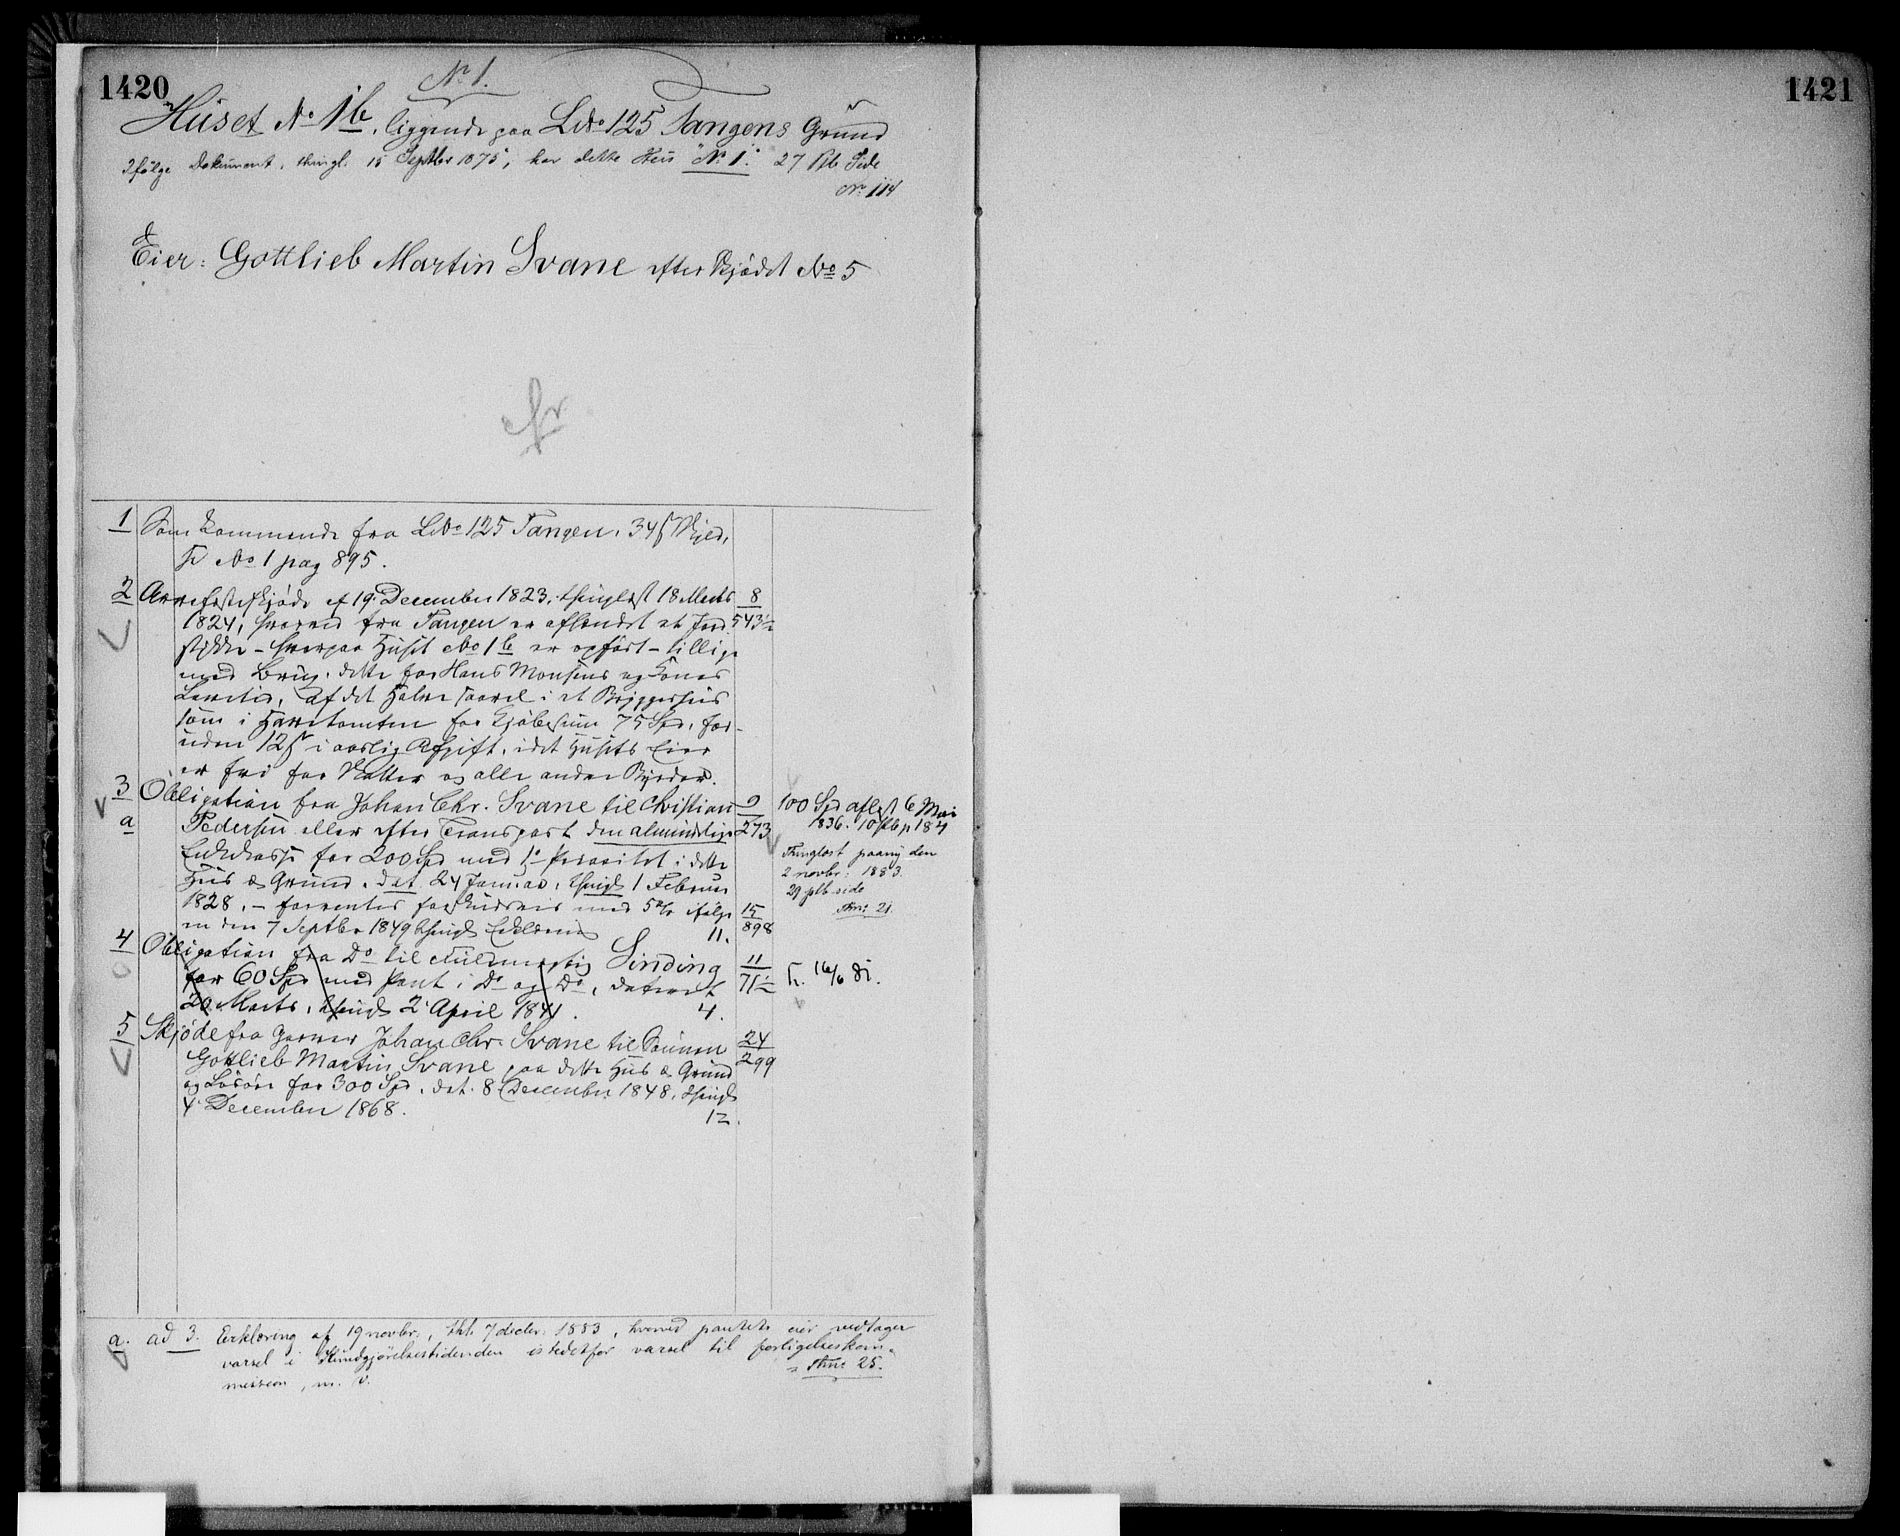 1420
No 1.
1421
Huset No 1b, liggende paa LNo 125 Tangens Grund
Ifølge Dokument, thingl. 15 Septbr 1875, har dette Huus "No 1". 27 Pb Side
No 114
Eier: Gottlieb Martin Svane efter Skjødet No 5
cfr
1 Som kommende fra LNo 125 Tangen, 34 ß Skyld,
No 1 pag 895.
2 Arvefesteskjøde af 19 December 1823, thinglæst 18 Marts 8
1824, hvorved fra Tangen er afhændet et Jord- 543½
stykke - hvorpaa Huset No 1b er opført - tillige
med Brug, dette for Hans Monsens og Kones
Levetid, af det halve i et Bryggerhuus
som i Havetomten for Kjøbesum 75 Spd, for-
uden 12 ß i aarlig Afgift, idet Husets Eier
er fri for Skatter og alle andre Byrder.
3 Obligation fra Johan Chr. Svane til Christian 9 100 Spd aflæst 6 Mai
a Pedersen eller efter Transport den almindelige 273 1836. 10 Pb p 184
Enkekasse for 200 Spd med 1' Prioritet i dette Thinglæst paany den
Huus & Grund. dat. 24 Januar, thingl. 1 Februar 2 novbr. 1883.
29 pb side
1828. - forrentes forskudsvis med 5% ifølge 15 Anm: 21.
en den 7 Septbr 1849 thingl. Erklæring 11. 898
4 Obligation fra Do til Fuldmægtig Sinding 11
for 60 Spd med Pant i Do og Do, dateret 71½ 16/6 81.
20 Marts, thingl. 2 April 1841. 4.
5 Skjøde fra Garver Johan Chr. Svane til Sønnen 24
Gottlieb Martin Svane paa dette Huus & Grund 299
og Løsøre for 300 Spd. dat. 8 December 1848, thingl.
4 December 1868. 12.
a. ad 3. Erklæring af 19 novbr., thl. 7 decbr. 1883, hvorved pantets eier vedtager
varsel i Kundgjørelsestidenden istedetfor varsel til forligelseskom-
mission, m. v. Anm: 25.